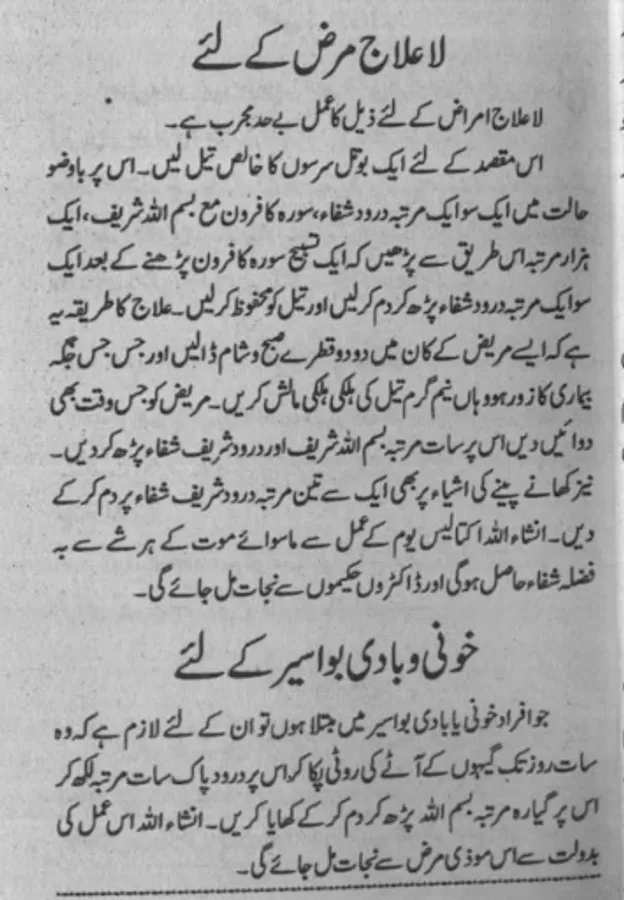 لا علاج مرض کے لئے
لا علاج امراض کے لئے ذیل کا عمل بے حد مجرب ہے۔
اس مقصد کے لئے ایک بوتل سرسوں کا خالص تیل لیں۔ اس پر باوضو
حالت میں ایک سو ایک مرتبہ درود شفاء، سورہ کافرون مع بسم اللہ شریف، ایک
ہزار مرتبہ اس طریق سے پڑھیں کہ ایک تسبیح سورہ کافرون پڑھنے کے بعد ایک
سو ایک مرتبہ درود شفاء پڑھ کر دم کر لیں اور تیل کو محفوظ کر لیں۔ علاج کا طریقہ یہ
ہے کہ ایسے مریض کے کان میں دو دو قطرے صبح و شام ڈالیں اور جس جس جگہ
بیماری کا زور ہو وہاں نیم گرم تیل کی ہلکی ہلکی مالش کریں۔ مریض کو جس وقت بھی
دوائیں دیں اس پر سات مرتبہ بسم اللہ شریف اور درود شریف شفاء پڑھ کر دیں۔
نیز کھانے پینے کی اشیاء پر بھی ایک سے تین مرتبہ درود شریف شفاء پر دم کر کے
دیں۔ انشاء اللہ اکتالیس یوم کے عمل سے ماسوائے موت کے ہر شے سے بہ
فضلہ شفاء حاصل ہوگی اور ڈاکٹروں حکیموں سے نجات مل جائے گی۔
خونی و بادی بواسیر کے لئے
جو افراد خونی یا بادی بواسیر میں مبتلا ہوں تو ان کے لئے لازم ہے کہ وہ
سات روز تک گیہوں کے آٹے کی روٹی پکا کر اس پر درود پاک سات مرتبہ لکھ کر
اس پر گیارہ مرتبہ بسم اللہ پڑھ کر دم کر کے کھایا کریں۔ انشاء اللہ اس عمل کی
بدولت سے اس موذی مرض سے نجات مل جائے گی۔